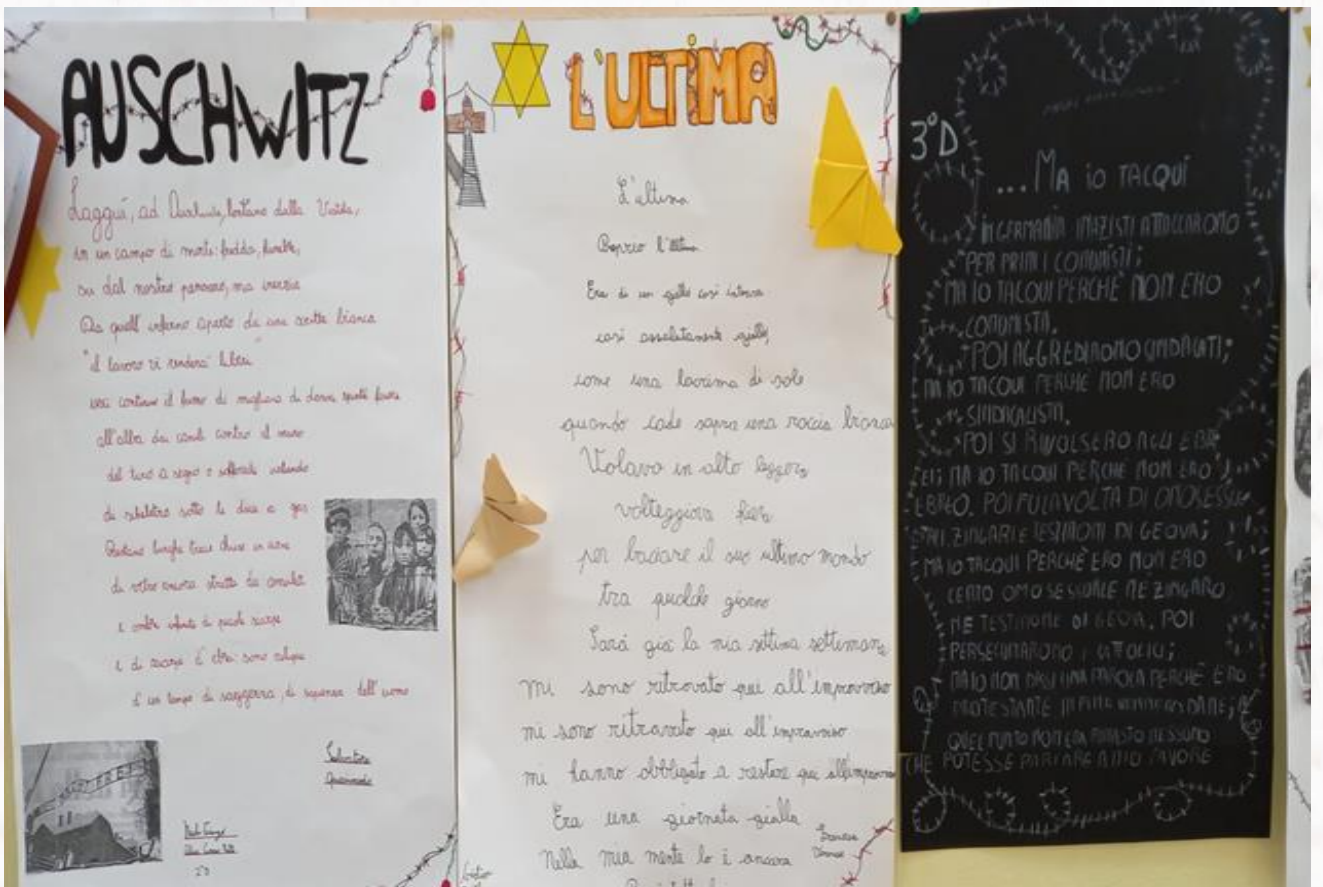 AUSCHWITZ
Laggiù, ad Auschwitz, lontano dalla Vistola,
in un campo di morte: freddo, funebre,
su dal nostro pensiero, ma inerzia
Da quell'inferno aperto da una scritta bianca
"il lavoro vi renderà liberi"
uscì continuo il fumo di migliaia di donne spinte fuori
all'alba dai canili contro il muro
del tiro a segno o soffocate urlando
di scheletro sotto le docce a gas
Restano lunghe trecce chiuse in urne
di vetro ancora strette da amuleti
e ombre infinite di piccole scarpe
e di sciarpe d'ebrei: sono reliquie
d'un tempo di saggezza, di sapienza dell'uomo
Salvatore
Quasimodo
2°D
L'ULTIMA
L'ultima
Proprio l'ultima
Era di un giallo così intenso
così assolutamente giallo,
come una lacrima di sole
quando cade sopra una roccia bianca
Volava in alto leggera
volteggiava
per baciare il suo ultimo mondo
tra qualche giorno
Sarà già la mia settima settimana
mi sono ritrovato qui all'improvviso
mi sono ritrovato qui all'improvviso
mi hanno obbligato a restare qui all'improvviso
Era una giornata gialla
Nella mia mente lo è ancora
3°D
...MA iO TACQUI
IN GERMANIA I NAZISTI ATTACCARONO
PER PRIMI I COMUNISTI;
MA IO TACQUI PERCHÈ NON ERO
COMUNISTA.
POI AGGREDIRONO I SINDACATI;
MA IO TACQUI PERCHÈ NON ERO
SINDACALISTA.
POI SI RIVOLSERO AGLI EBR
EI; MA IO TACQUI PERCHÈ NON ERO
EBREO. POI FU LA VOLTA DI OMOSESSU
ALI ZINGARI E TESTIMONI DI GEOVA;
MA IO TACQUI PERCHÈ ERO NON ERO
CERTO OMOSESSUALE NE ZINGARO
NE TESTIMONE DI GEOVA. POI
PERSEGUITARONO I CATTOLICI;
MA IO NON DISSI UNA PAROLA PERCHÈ ERO
PROTESTANTE. INFINE VENNERO DA ME; A
QUEL PUNTO NON ERA RIMASTO NESSUNO
CHE POTESSE PARLARE A MIO FAVORE